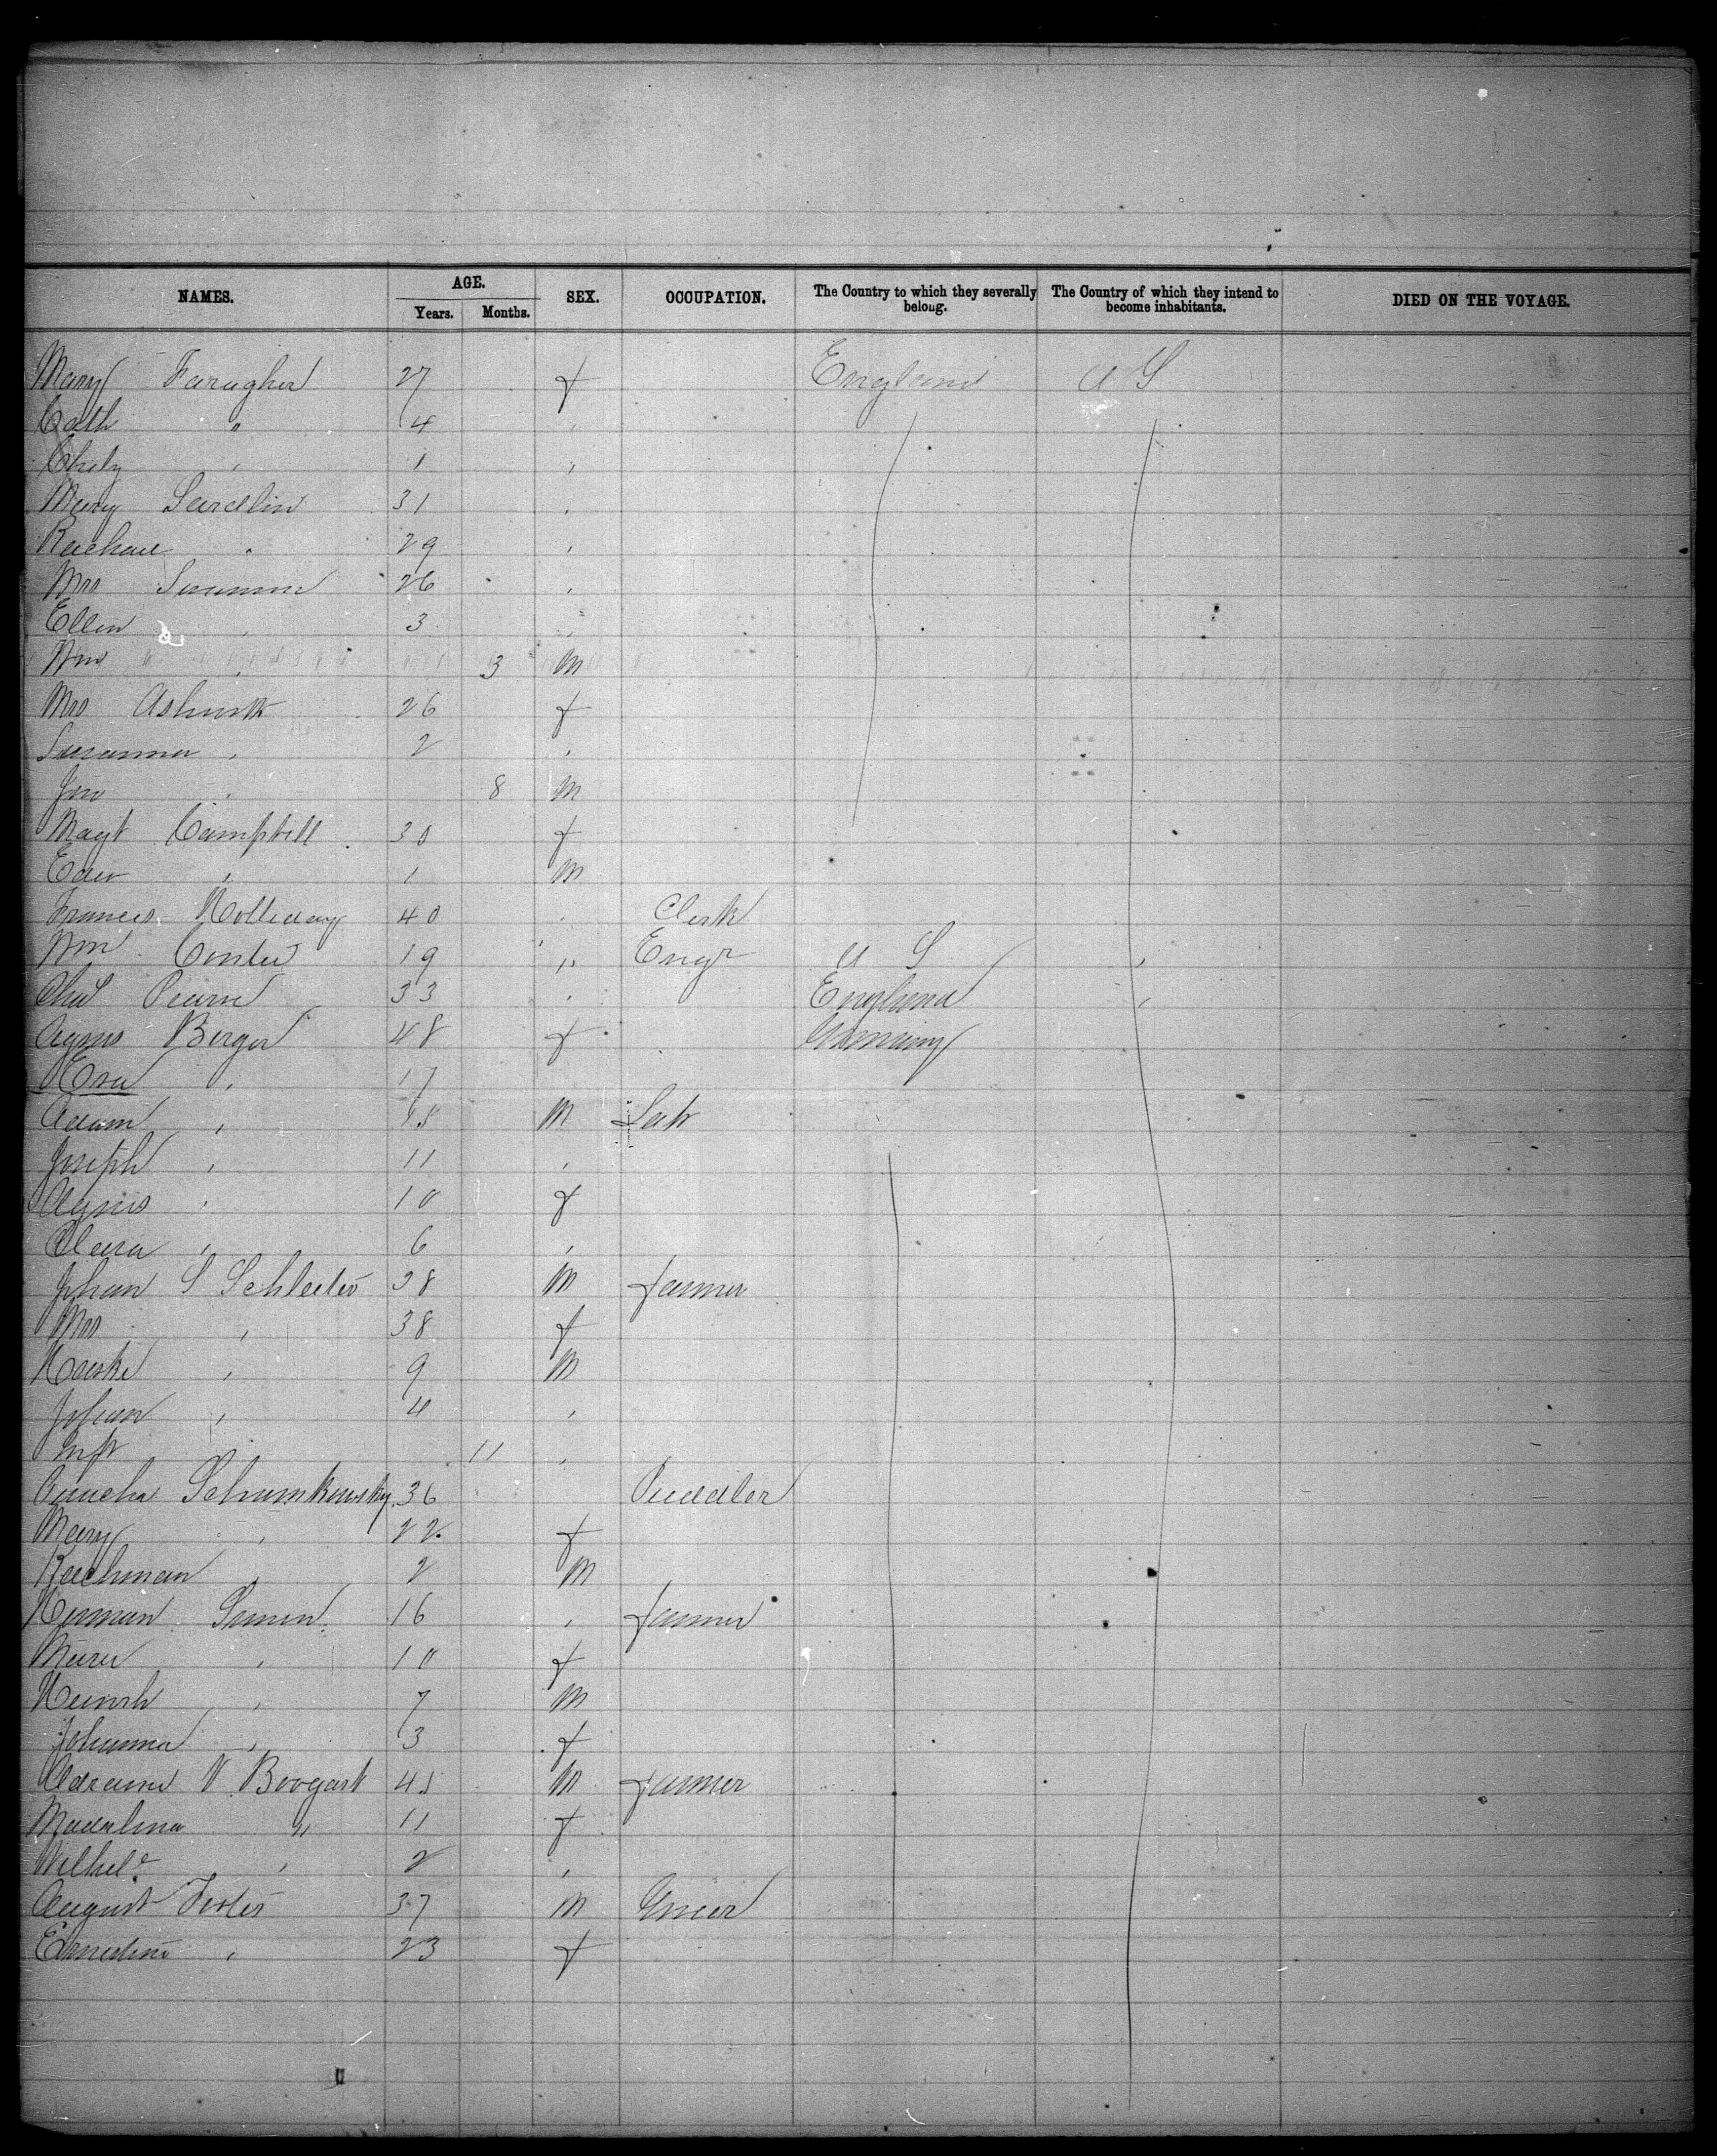 NAMES. AGE. SEX. OCCUPATION. The Country to which they severally belong. The Country of which they intend to become inhabitants. DIED ON THE VOYAGE.
Years. Months.
Mary Faragher 27 f England U S
Cath " 4 "
" 1 "
Mary 31 "
Rachael " 29 "
Mrs 26 "
Ellen " 3 "
Wm " 3 m
Mrs Ashworth 26 f
Susanna " 2 "
Jno " 8 m
Magt Campbell 30 f
Edw " 1 m
Francis Holliday 40 " Clerk
Wm 19 " Engr U S "
Chas 33 " England "
Agnes Berger 48 f Germany
" 17
Adam " 15 m Lab
Joseph " 11 "
Agnes " 10 f
Clara " 6 "
Johan S 38 m farmer
Mrs " 38 f
" 9 m
Johan " 4 "
Inft 11 "
Schumkowsky 36 Puddler
Mary " 22 f
" 2 m
Herman Simon 16 " farmer
" 10 f
" 7 m
Johanna " 3 f
V Boogart 45 m farmer
Madalina " 11 f
" 2 "
August 37 m
Ernestine " 23 f